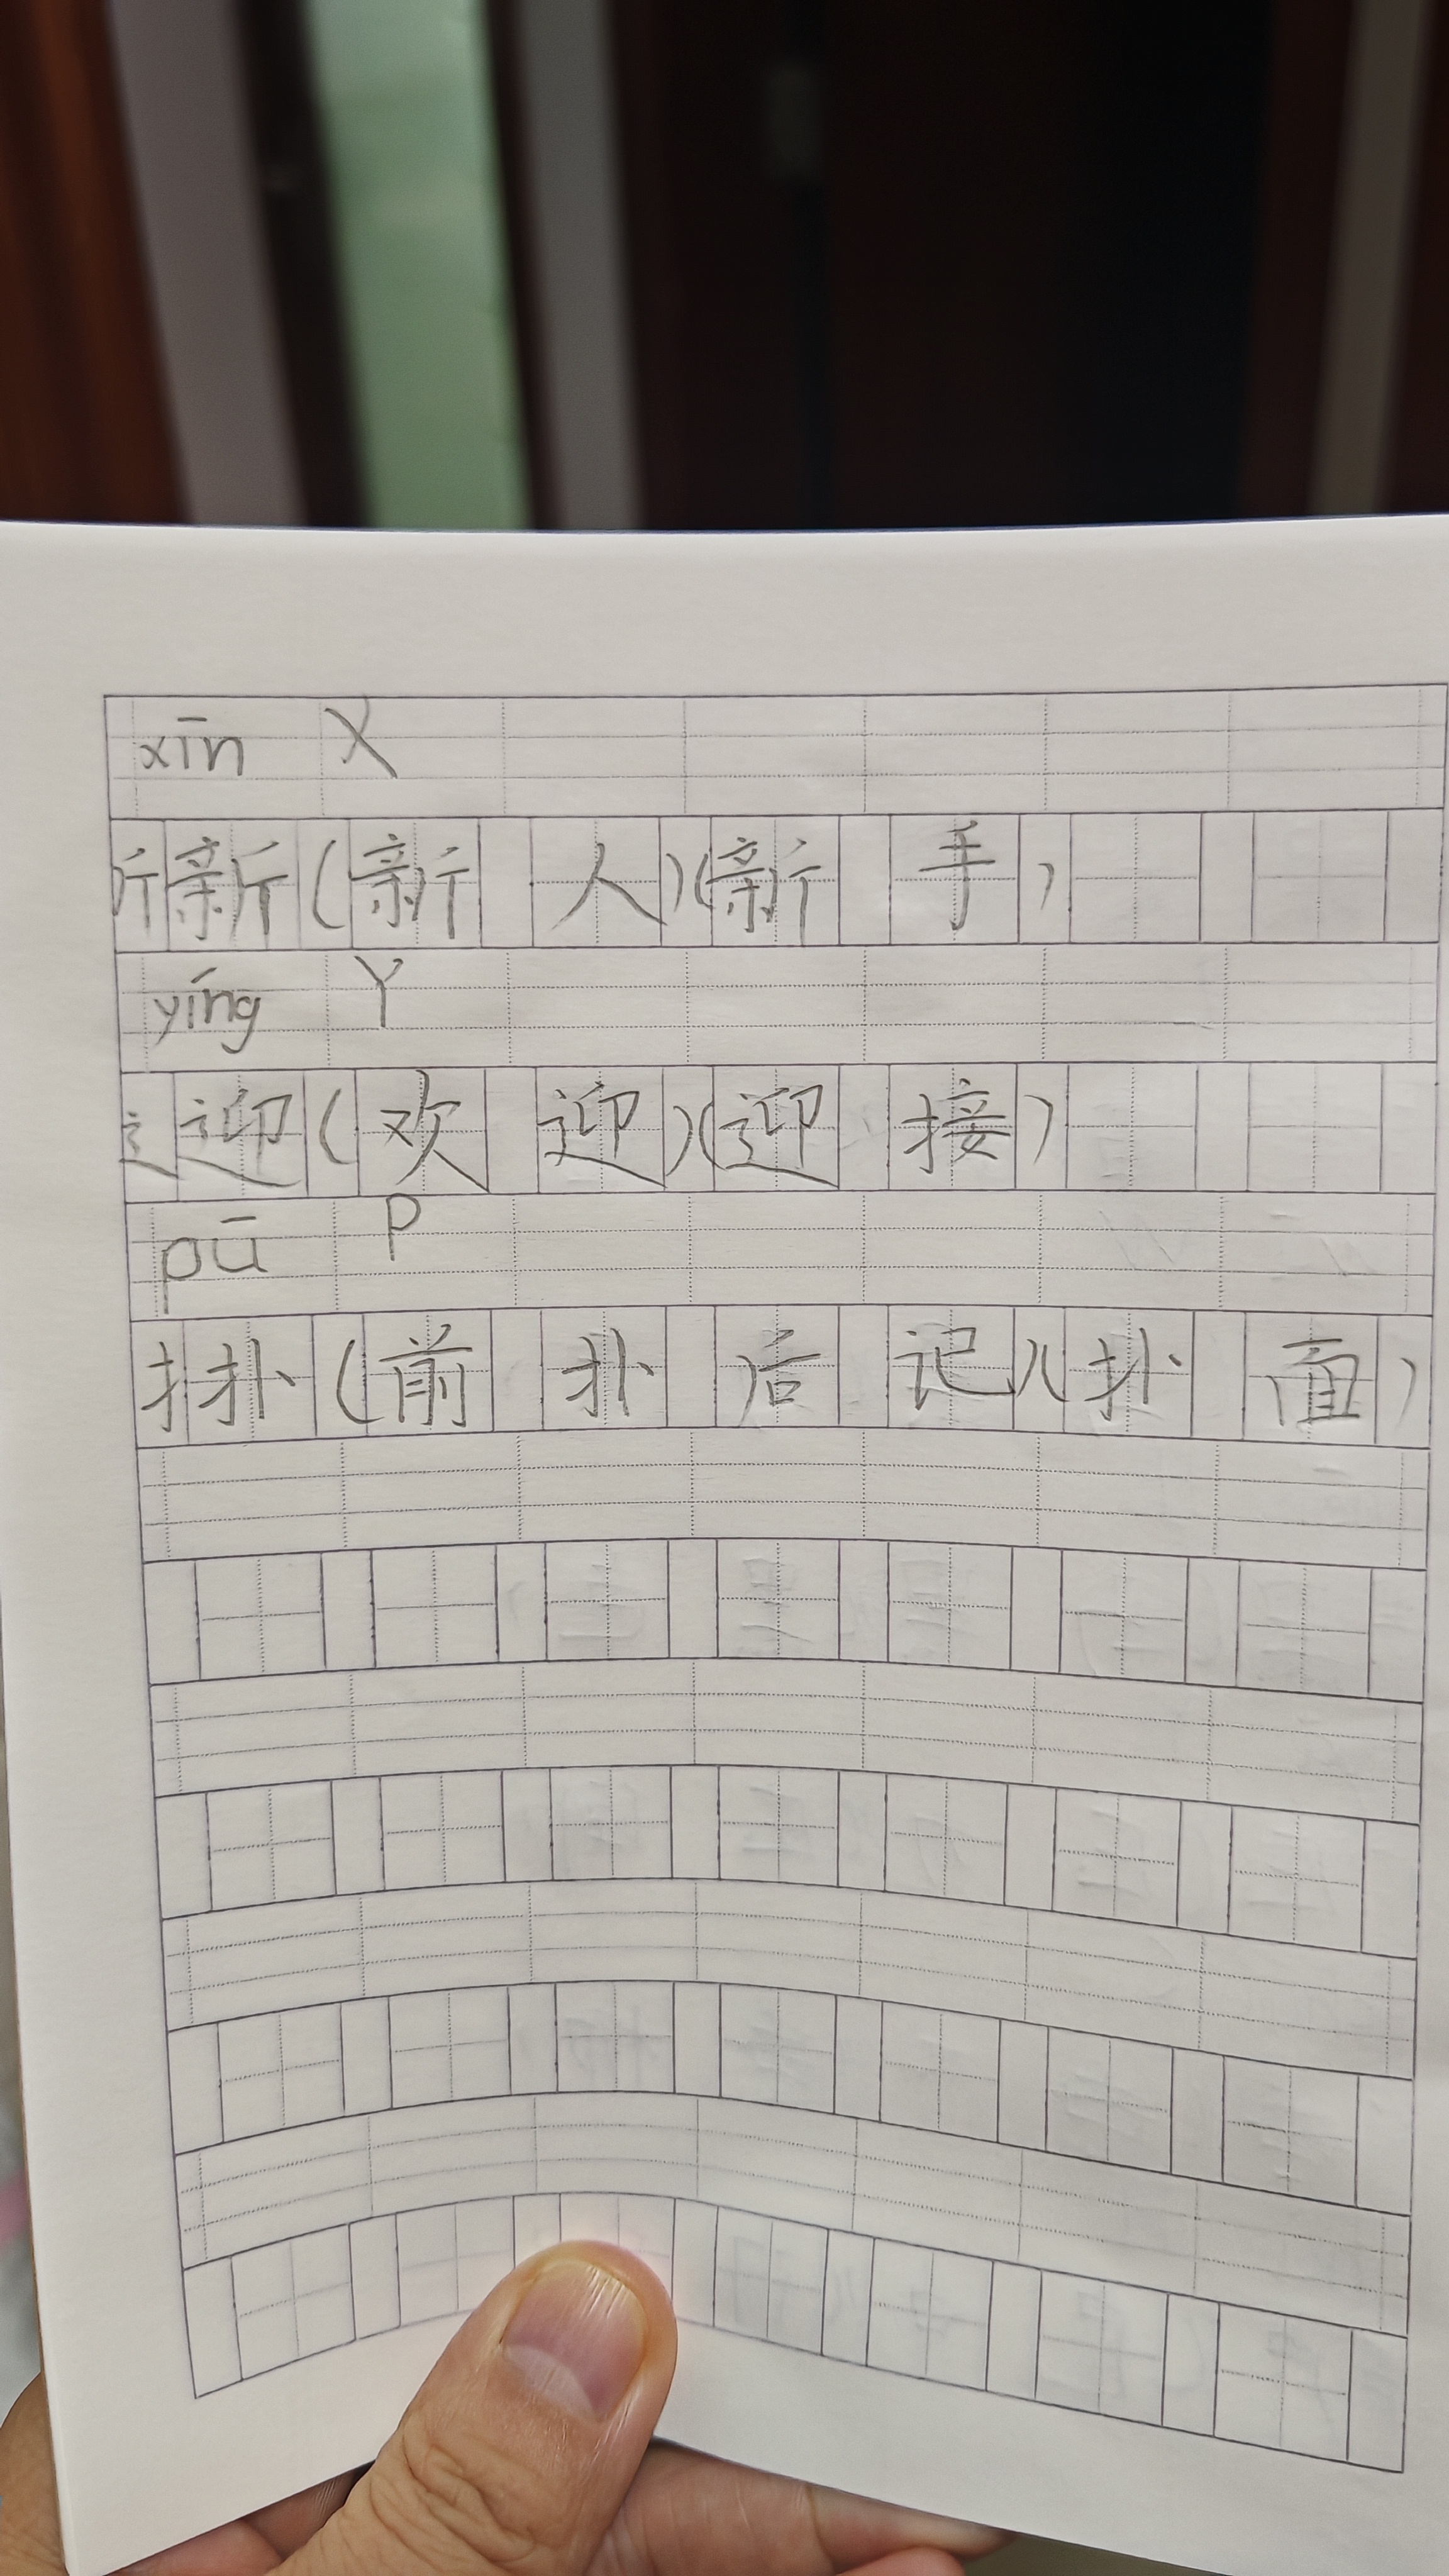 xīn X
斤新(新人)(新手)
yíng Y
辶迎(欢迎)(迎接)
pū P
扌扑(前扑后记)(扑面)